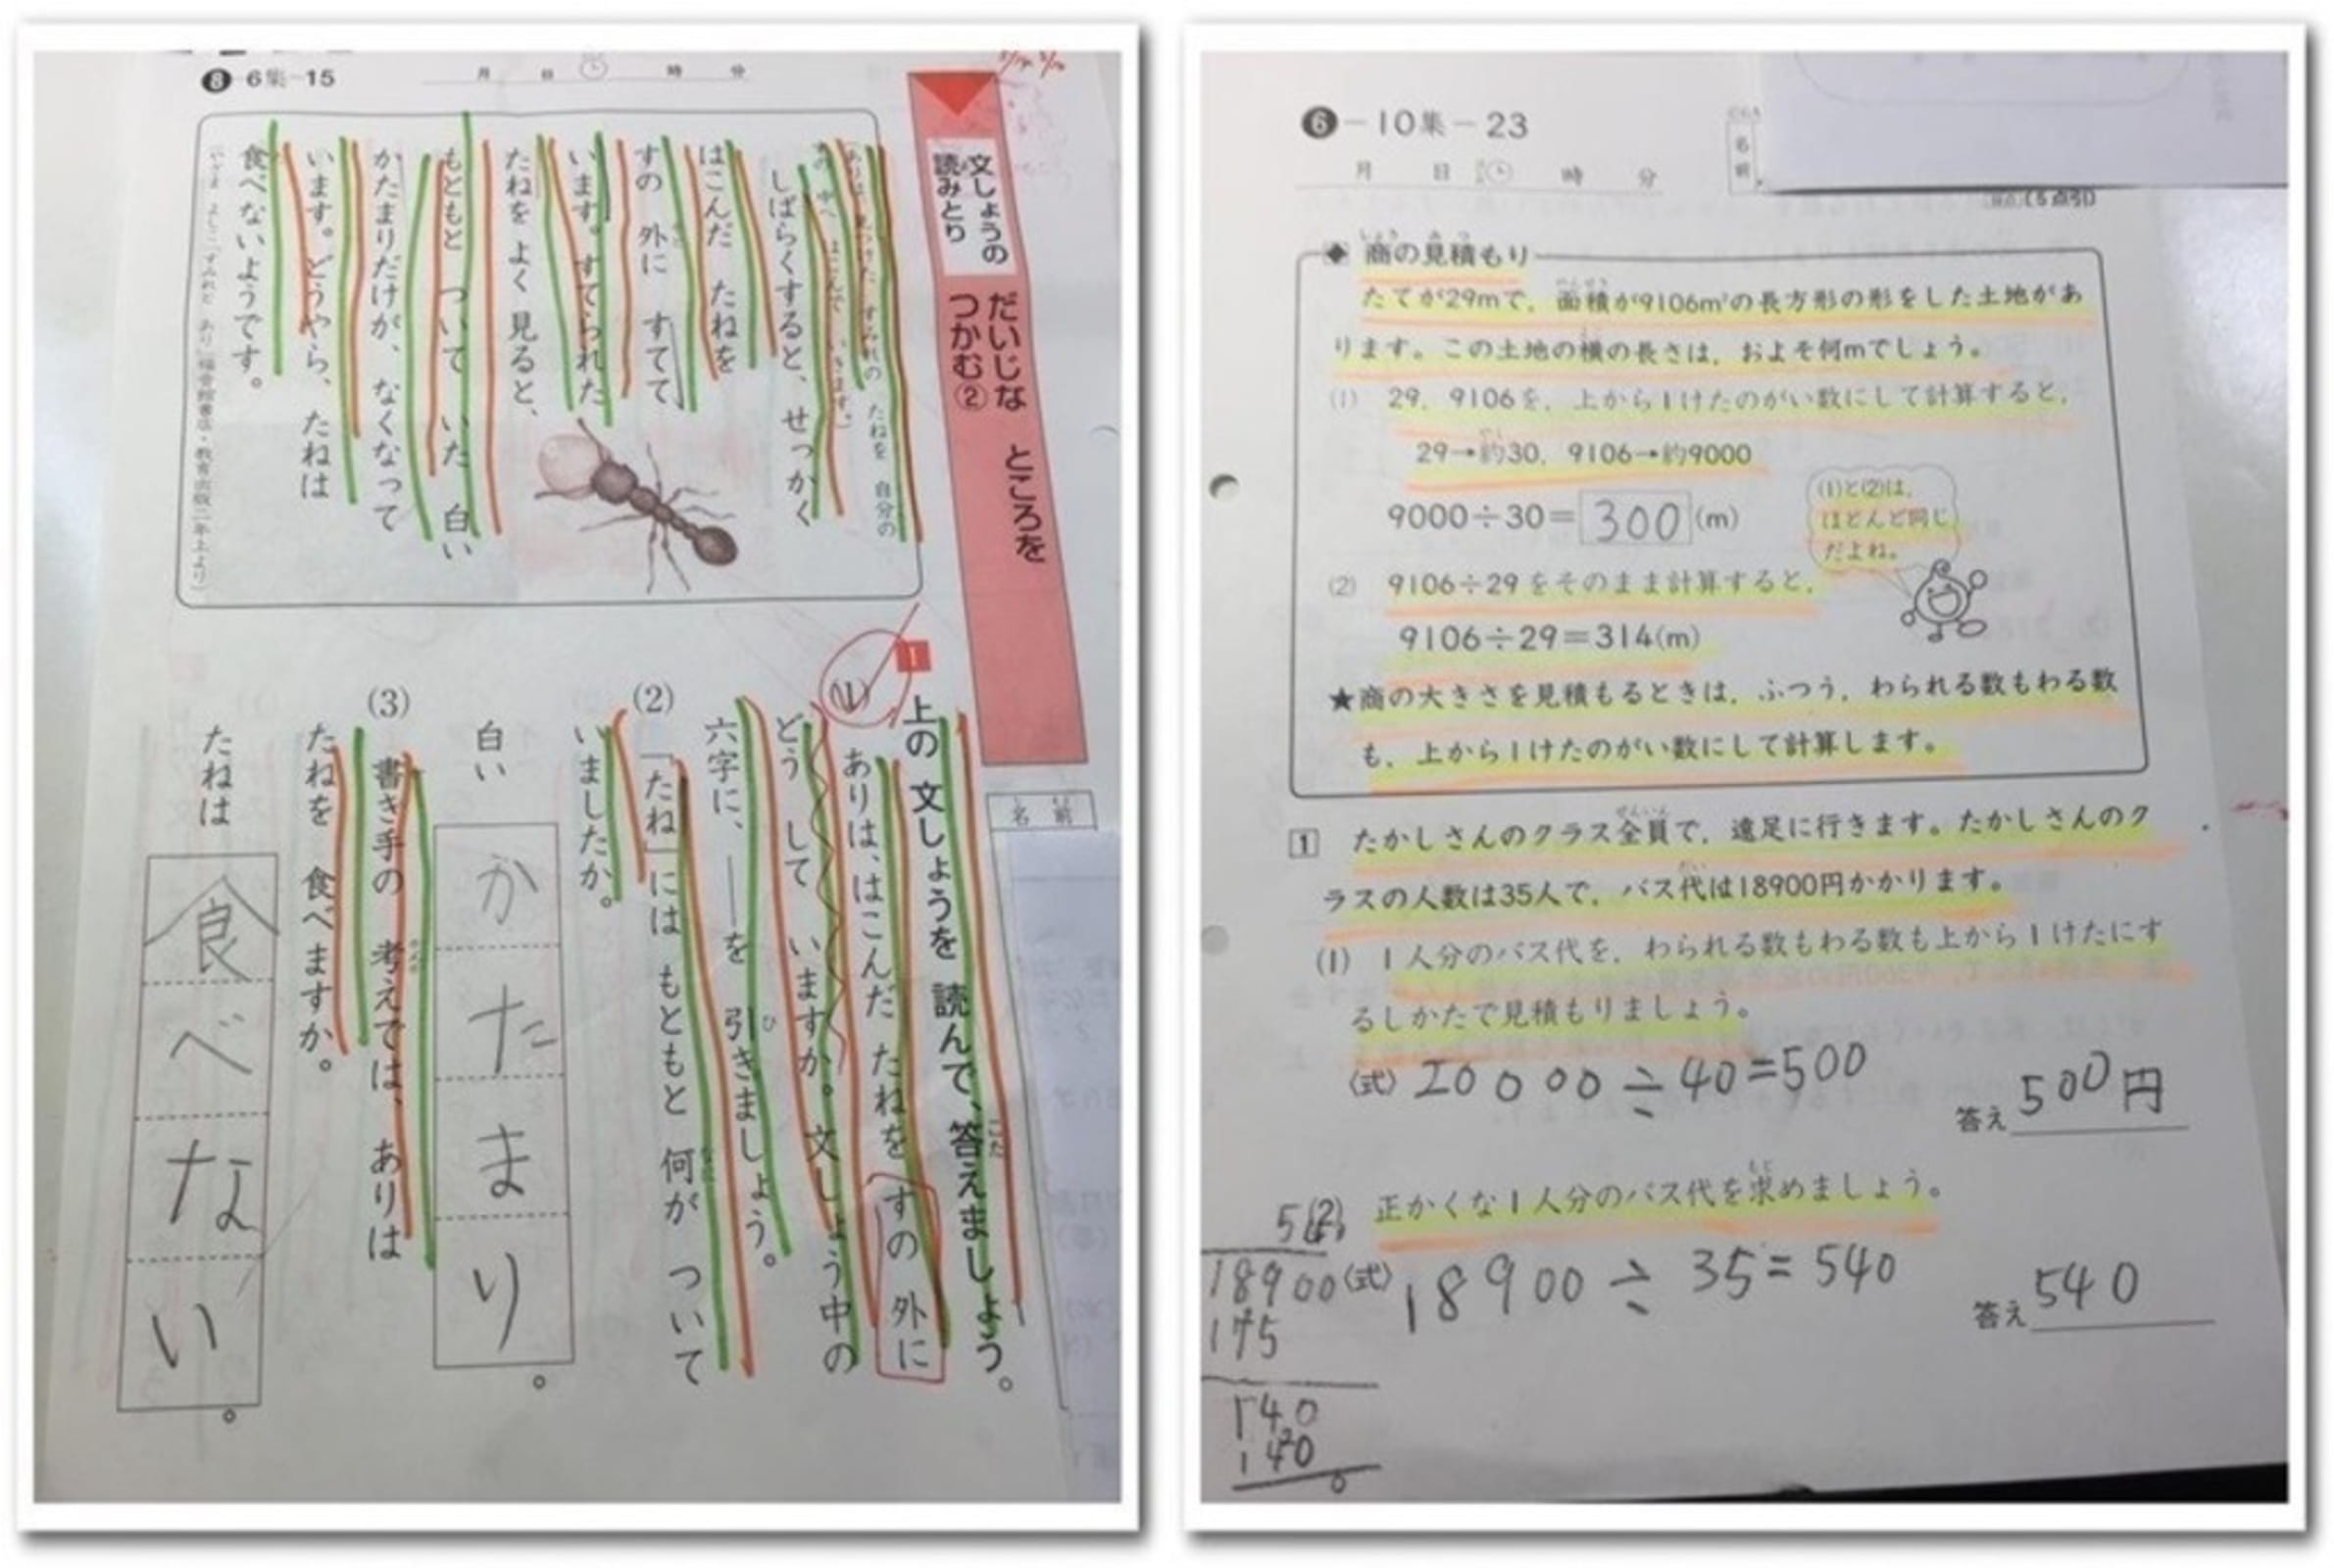 8 6集-15
月 日 時 分
文しょうの
読みとり
だいじな ところを
つかむ②
名前
(ありは、見つけた すみれの たねを 自分の
すの 中へ はこんで いきます。)
しばらくすると、せっかく
はこんだ たねを
すの 外に すてて
います。すてられた
たねを よく 見ると、
もともと ついて いた 白い
かたまりだけが、なくなって
います。どうやら、たねは
食べないようです。
1 上の 文しょうを 読んで、答えましょう。
(1) ありは、はこんだ たねを すの 外に
どう して いますか。文しょう中の
六字に、――を 引きましょう。
(2) 「たね」には もともと 何が ついて
いましたか。
白い かたまり。
(3) 書き手の 考えでは、ありは
たねを 食べますか。
たねは 食べない。
6-10集-23
月 日 時 分
名前
(5点引)
◆商の見積もり
たてが29mで、面積が9106m²の長方形の形をした土地があ
ります。この土地の横の長さは、およそ何mでしょう。
(1) 29、9106を、上から1けたのがい数にして計算すると、
29→約30、9106→約9000
9000÷30=300(m)
(1)と(2)は、
ほとんど同じ
だよね。
(2) 9106÷29をそのまま計算すると、
9106÷29=314(m)
★商の大きさを見積もるときは、ふつう、わられる数もわる数
も、上から1けたのがい数にして計算します。
1 たかしさんのクラス全員で、遠足に行きます。たかしさんのク
ラスの人数は35人で、バス代は18900円かかります。
(1) 1人分のバス代を、わられる数もわる数も上から1けたにす
るしかたで見積もりましょう。
(式) 20000÷40=500
答え 500円
(2) 正かくな1人分のバス代を求めましょう。
(式) 18900÷35=540
答え 540
18900
175
140
140
0